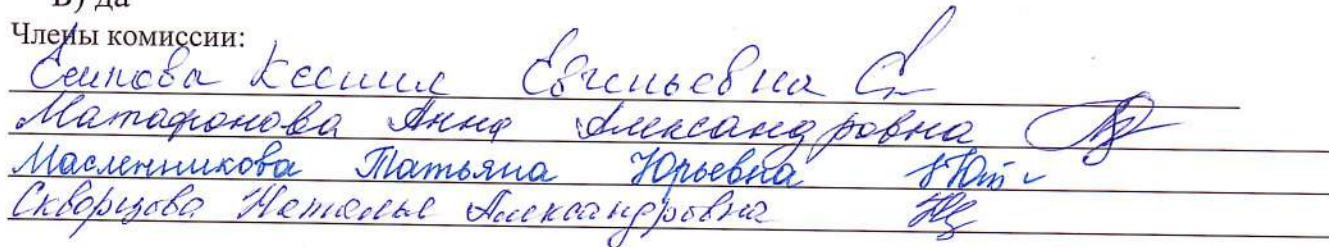 В) да
Члены комиссии:
Есипова Ксения Евгеньевна
Матафонова Анна Александровна
Масленникова Татьяна Юрьевна
Скворцова Наталья Александровна